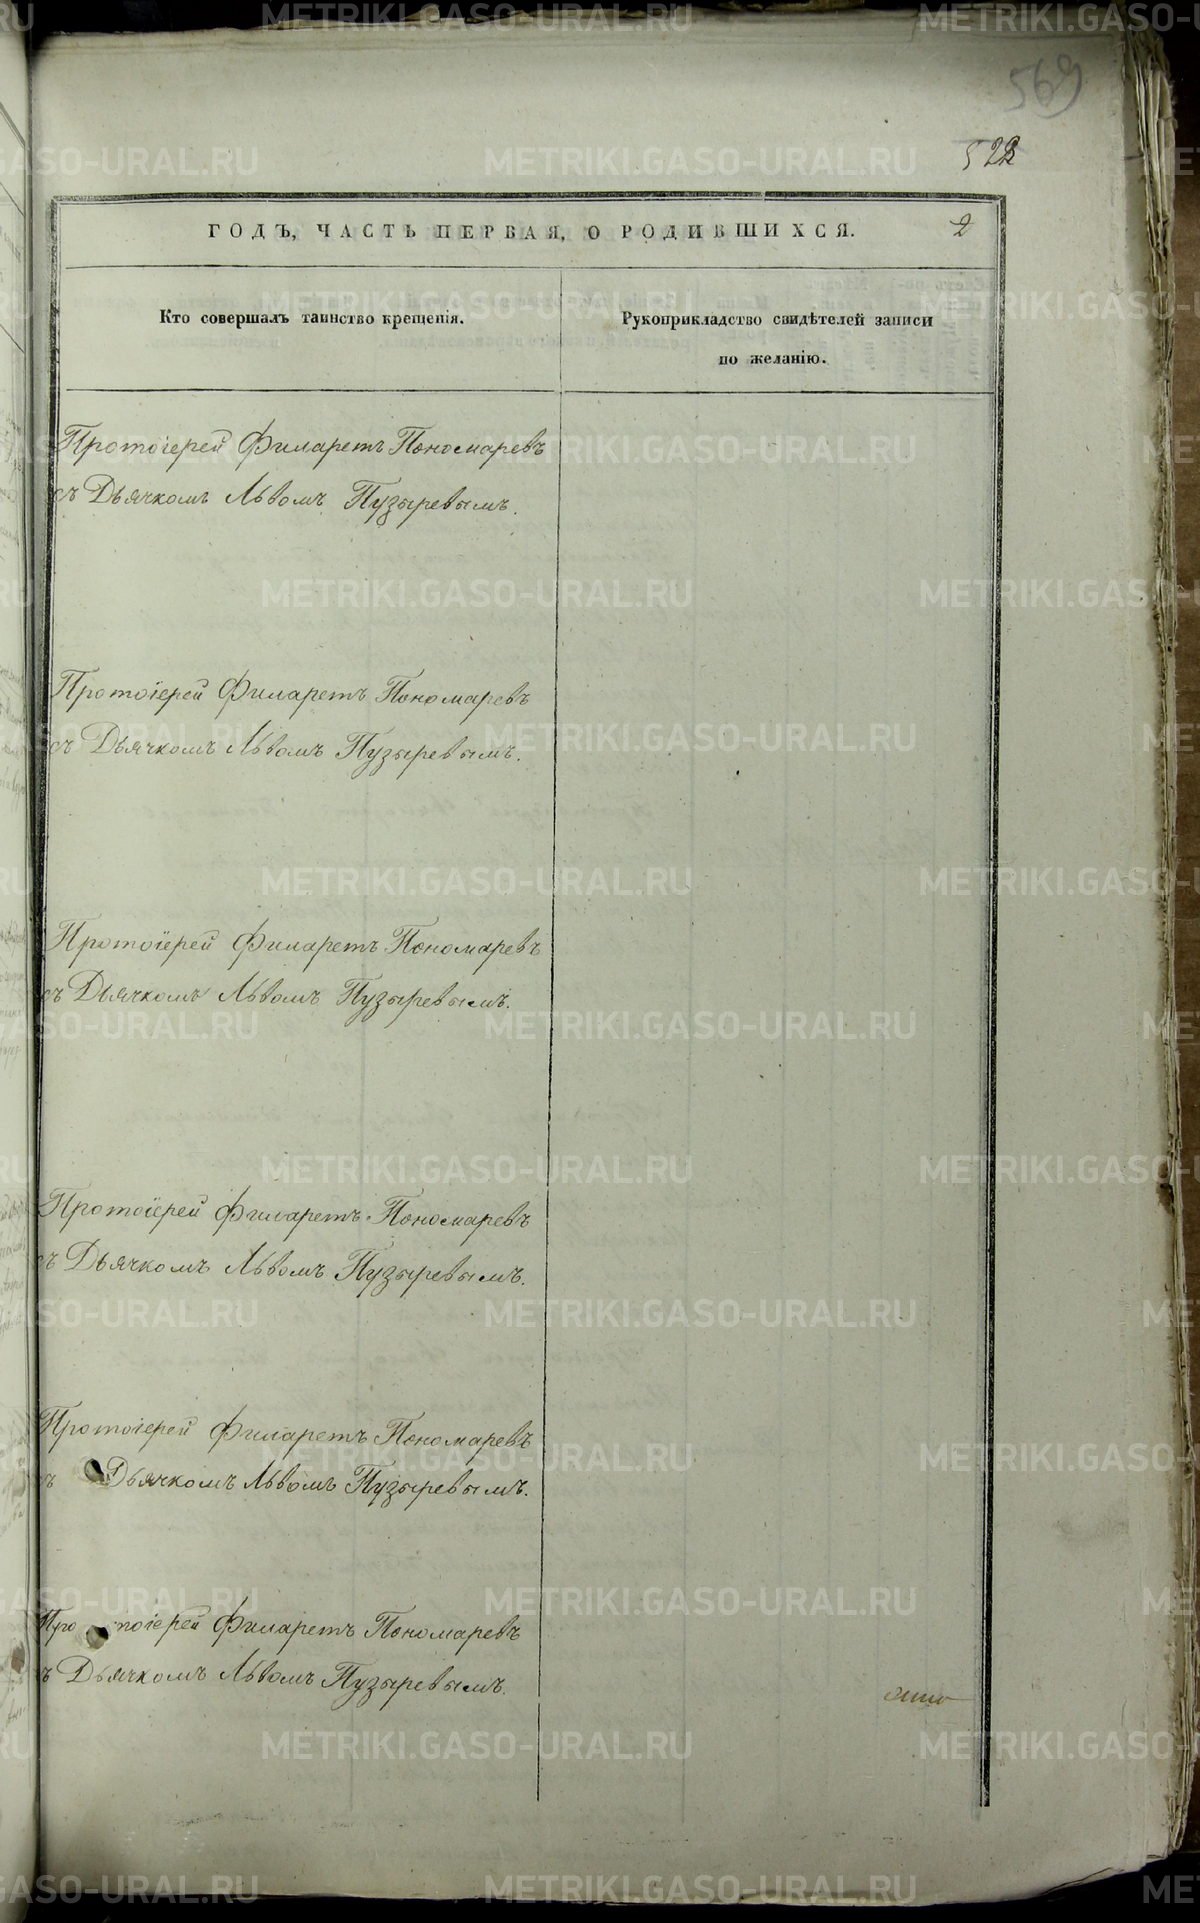 569
522
ГОДЪ, ЧАСТЬ ПЕРВАЯ, О РОДИВШИХСЯ. 2
Кто совершалъ таинство крещенія.
Рукоприкладство свидѣтелей записи
по желанію.
Протоіерей Филаретъ Пономаревъ
съ Дьячкомъ Львомъ Пузыревымъ.
Протоіерей Филаретъ Пономаревъ
съ Дьячкомъ Львомъ Пузыревымъ.
Протоіерей Филаретъ Пономаревъ
съ Дьячкомъ Львомъ Пузыревымъ.
Протоіерей Филаретъ Пономаревъ
съ Дьячкомъ Львомъ Пузыревымъ.
Протоіерей Филаретъ Пономаревъ
съ Дьячкомъ Львомъ Пузыревымъ.
Протоіерей Филаретъ Пономаревъ
съ Дьячкомъ Львомъ Пузыревымъ.
METRIKI.GASO-URAL.RU